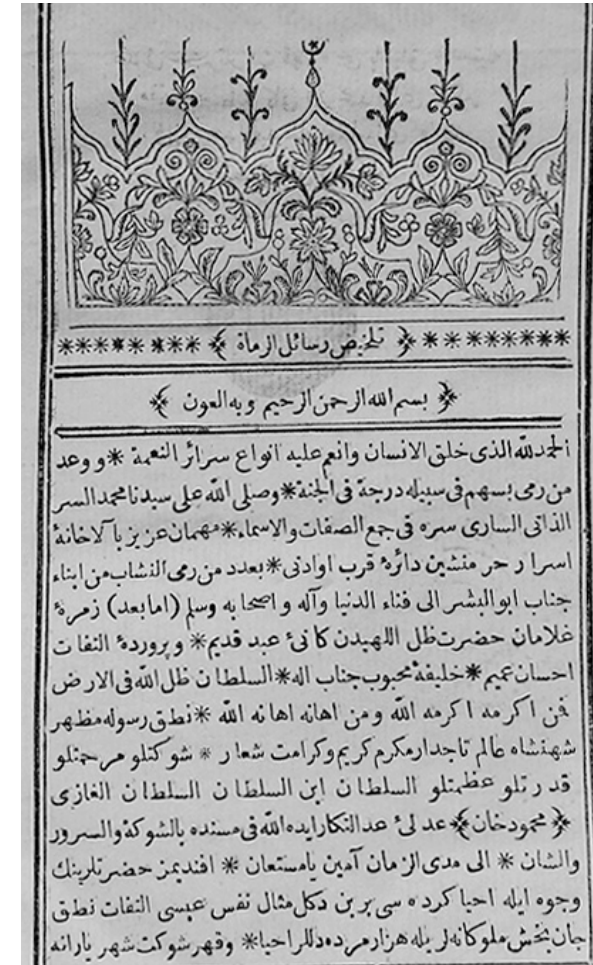 تلخيص رسائل الرماة
بسم الله الرحمن الرحيم وبه العون
الحمدلله الذى خلق الانسان وانعم عليه انواع سرائر النعمة * ووعد
من رمى بسهم فى سبيله درجة فى الجنة * وصلى الله على سيدنا محمد السر
الذاتى السارى سره فى جمع الصفات والاسماء * مهمان عزيز بالاخانهٔ
اسرار حر منشين دائرهٔ قرب اوادنى * بعدد من رمى النشاب من ابناء
جناب ابوالبشر الى فناء الدنيا وآله واصحابه وسلم (امابعد) زمرهٔ
غلامان حضرت ظل اللهيدن كانئ عبد قديم * و پروردهٔ التفات
احسان عميم * خليفهٔ محبوب جناب اله * السلطان ظل الله فى الارض
فمن اكرمه اكرمه الله ومن اهانه اهانه الله * نطق رسوله مظهر
شهنشاه عالم تاجدار مكرم كريم وكرامت شعار * شوكتلو مرحمتلو
قدرتلو عظمتلو السلطان ابن السلطان السلطان الغازى
﴿محمود خان﴾ عدلئ عد النكار ايده الله فى مسنده بالشوكة والسرور
والشان * الى مدى الزمان آمين يامستعان * افنديمز حضرتلرينك
وجوه ايله احيا كرده سى برين دكل مثال نفس عيسى التفات نطق
جان بخش ملوكانه لريله هزار مرده دللر احيا * وقهر شوكت شهر يارانه